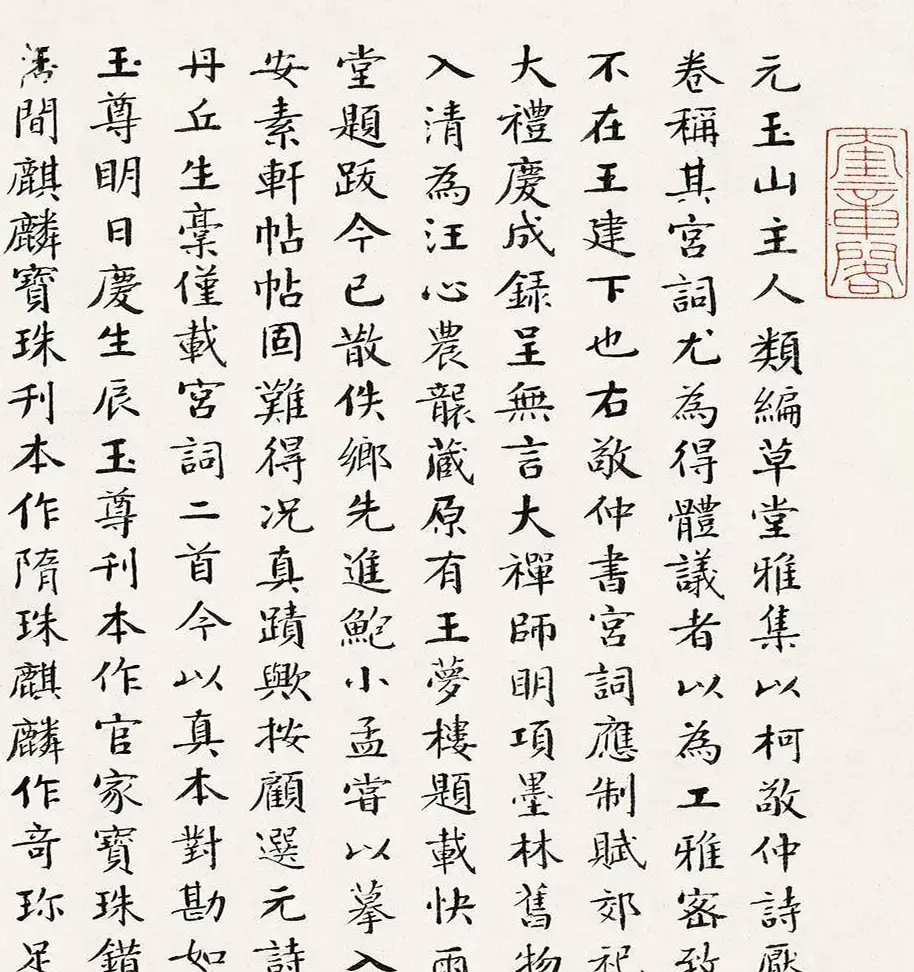 奎章閣
元玉山主人類編草堂雅集以柯敬仲詩
卷稱其宮詞尤為得體議者以為工雅密致
不在王建下也右敬仲書宮詞應制賦郊祀
大禮慶成録呈無言大禪師明項墨林舊物
入清為汪心農襲藏原有王夢樓題載快雨
堂題跋今已散佚鄉先進鮑小孟嘗以摹入
安素軒帖帖固難得况真蹟歟按顧選元詩
丹丘生稾僅載宮詞二首今以真本對勘如
玉尊明日慶生辰玉尊刊本作官家寶珠錯
間麒麟寶珠刊本作隋珠麒麟作奇珍足